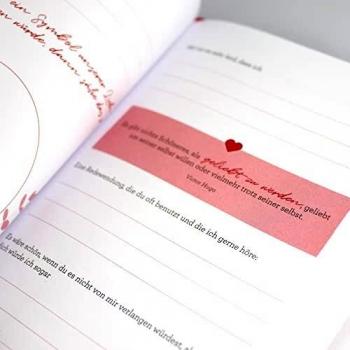 ein Symbol
würde, dann
Es gibt nichts Schöneres, als geliebt zu werden, geliebt
um seiner selbst willen oder vielmehr trotz seiner selbst.
Victor Hugo
Eine Redewendung, die du oft benutzt und die ich gerne höre:
Es wäre schön, wenn du es nicht von mir verlangen würdest,
würde ich sogar: